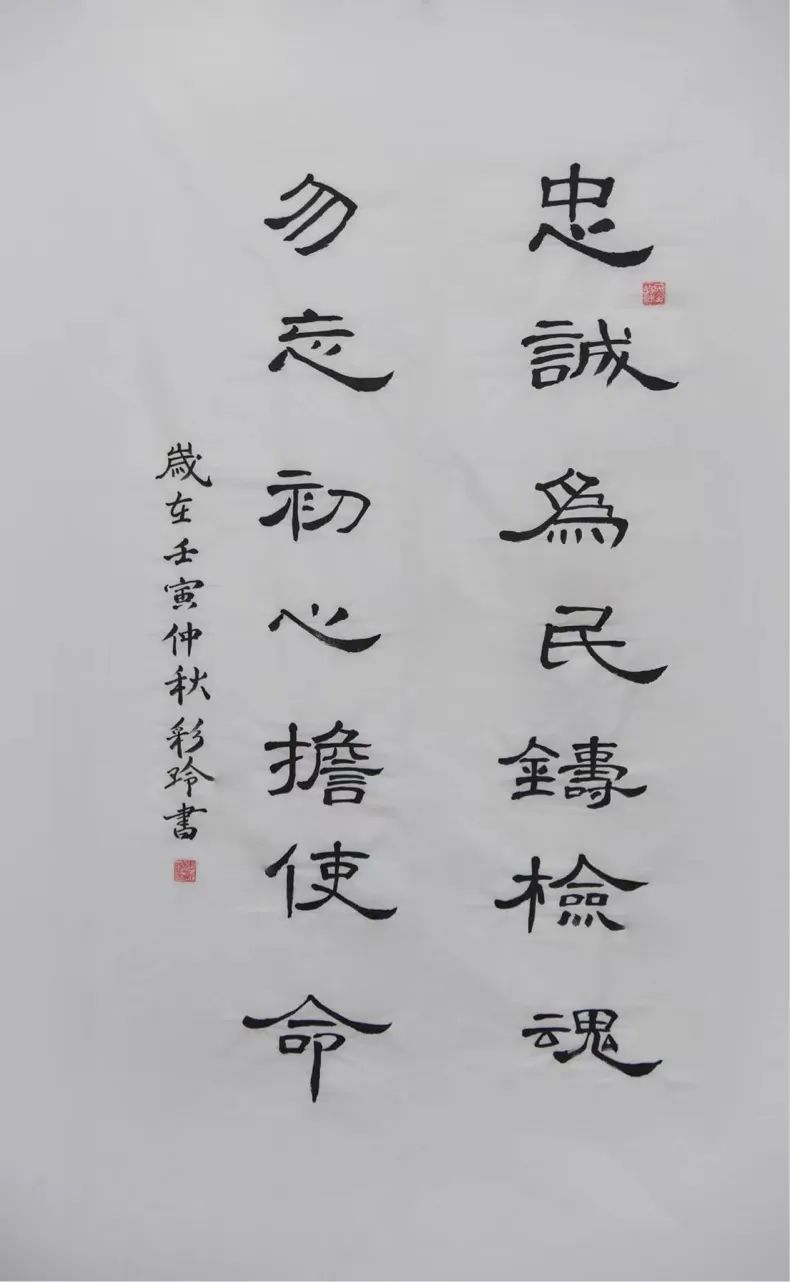 忠誠爲民鑄檢魂
勿忘初心擔使命
歲在壬寅仲秋彩玲書